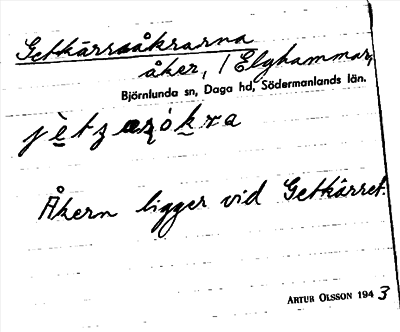 Getkärrsåkrarna
åker, / Elghammar,
Björnlunda sn, Daga hd, Södermanlands län.
Åkern ligger vid Getkärret.
ARTUR OLSSON 1943